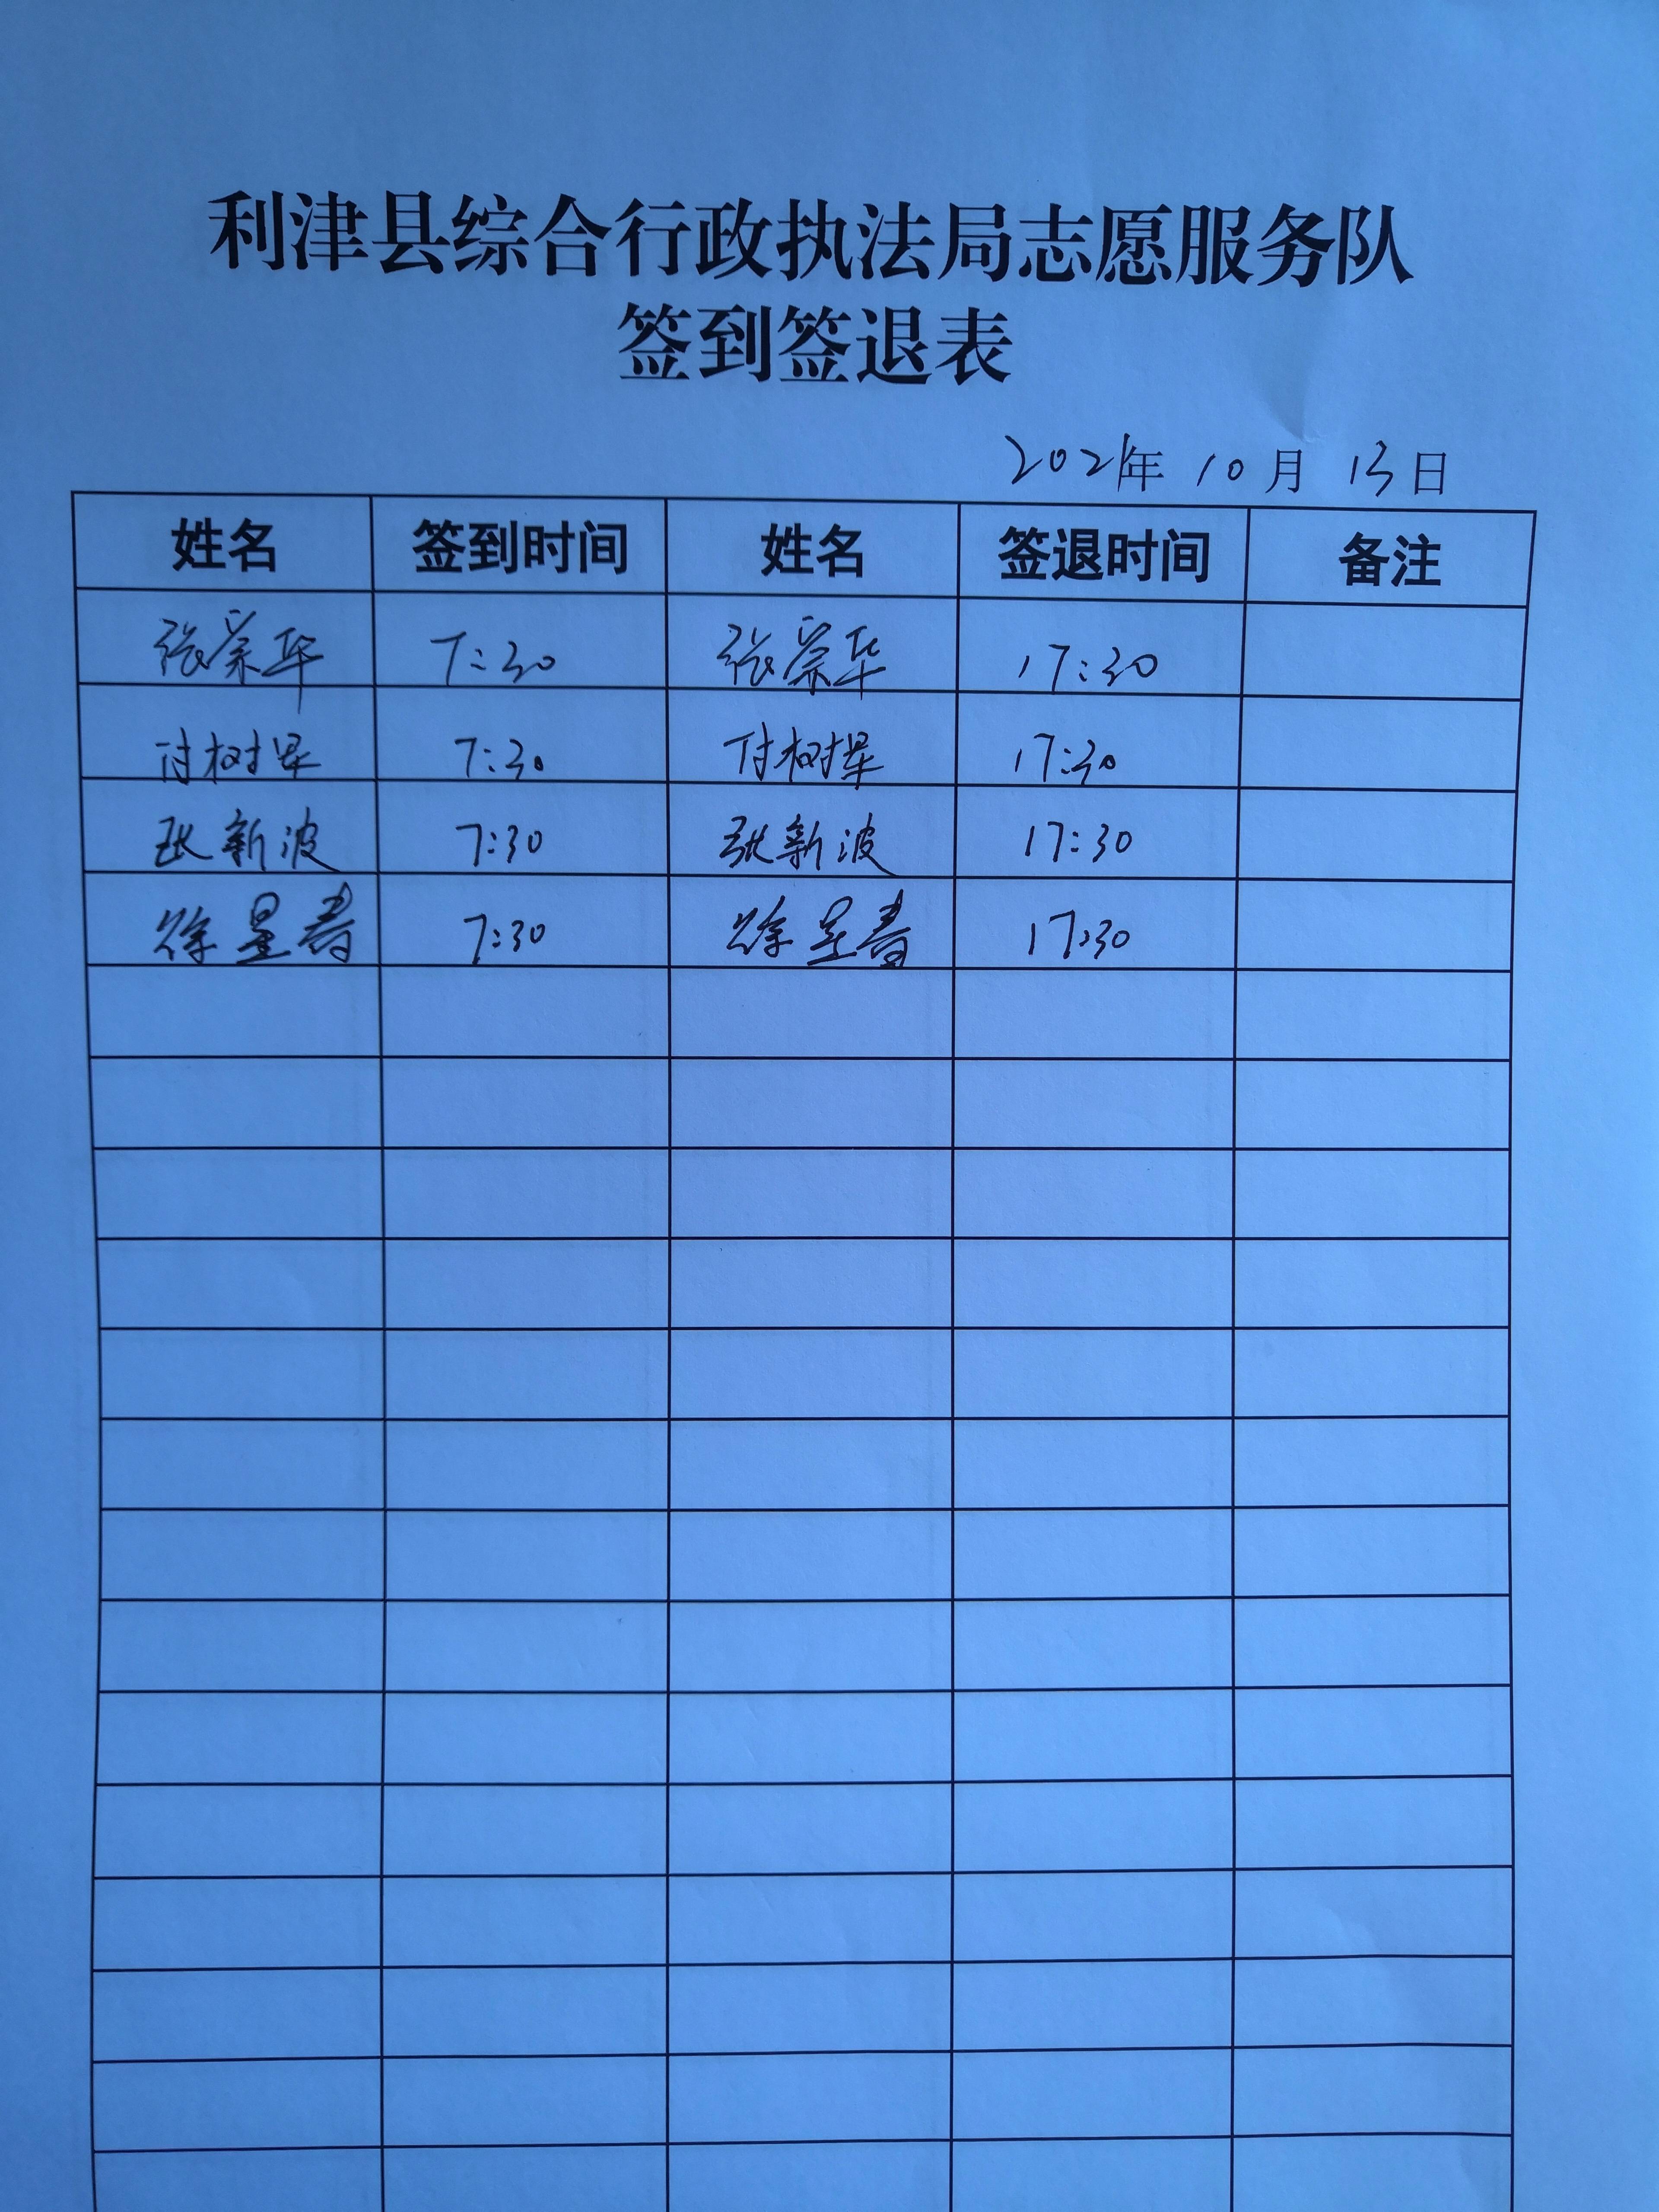 利津县综合行政执法局志愿服务队
签到签退表
2021年 10月 13日
姓名 签到时间 姓名 签退时间 备注
张宗华 7:30 张宗华 17:30
付树 7:30 付树 17:30
张新波 7:30 张新波 17:30
徐星春 7:30 徐星春 17:30